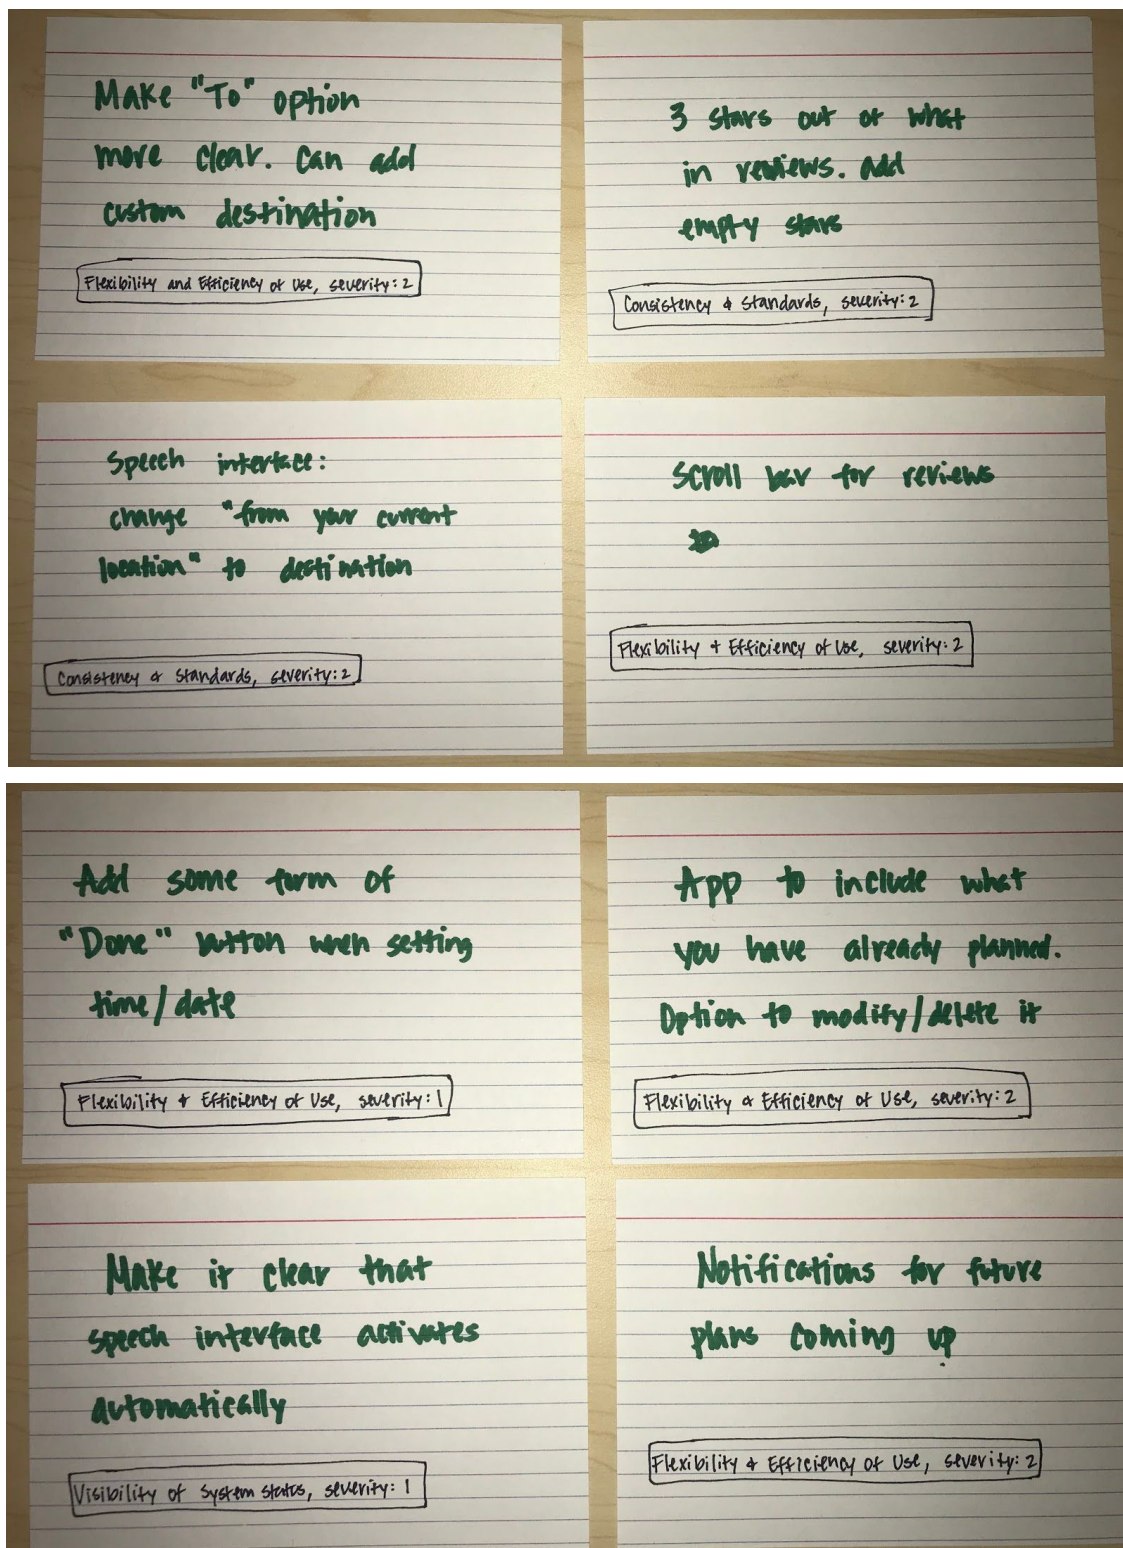 Make "To" option
more clear. Can add
custom destination
Flexibility and Efficiency of Use, severity: 2
3 stars out of what
in reviews. add
empty stars
Consistency & Standards, severity: 2
Speech interface:
change "from your current
location" to destination
Consistency & Standards, severity: 2
Scroll bar for reviews
Flexibility + Efficiency of Use, severity: 2
Add some form of
"Done" button when setting
time/date
Flexibility & Efficiency of Use, severity: 1
App to include what
you have already planned.
Option to modify/delete it
Flexibility & Efficiency of Use, severity: 2
Make it clear that
speech interface activates
automatically
Visibility of System Status, severity: 1
Notifications for future
plans coming up
Flexibility & Efficiency of Use, severity: 2